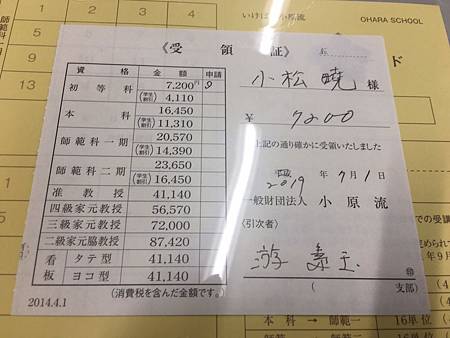 師範科一
いけばな小原流
OHARA SCHOOL
5
4
9
8
13
ド
《受領証》
資格 金額 申請
初等科 7,200円 9
(学生割引) 4,110
本科 16,450
(学生割引) 11,310
師範科一期 20,570
(学生割引) 14,390
師範科二期 23,650
(学生割引) 16,450
准教授 41,140
四級家元教授 56,570
三級家元教授 72,000
二級家元脇教授 87,420
看板 タテ型 41,140
ヨコ型 41,140
2014.4.1
(消費税を含んだ金額です。)
小松曉 様
¥ 7200
上記の通り確かに受領いたしました
平成
2019 年 7月1日
一般財団法人 小原流
(引次者)
游素玉 ㊞
( 支部)
本科 → 師範一
16単位